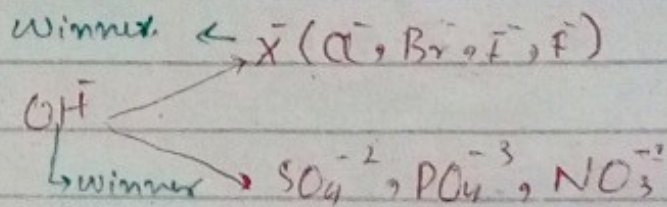 winner. ← X⁻ (Cl⁻, Br⁻, I⁻, F⁻)
OH⁻
↳ winner → SO₄⁻², PO₄⁻³, NO₃